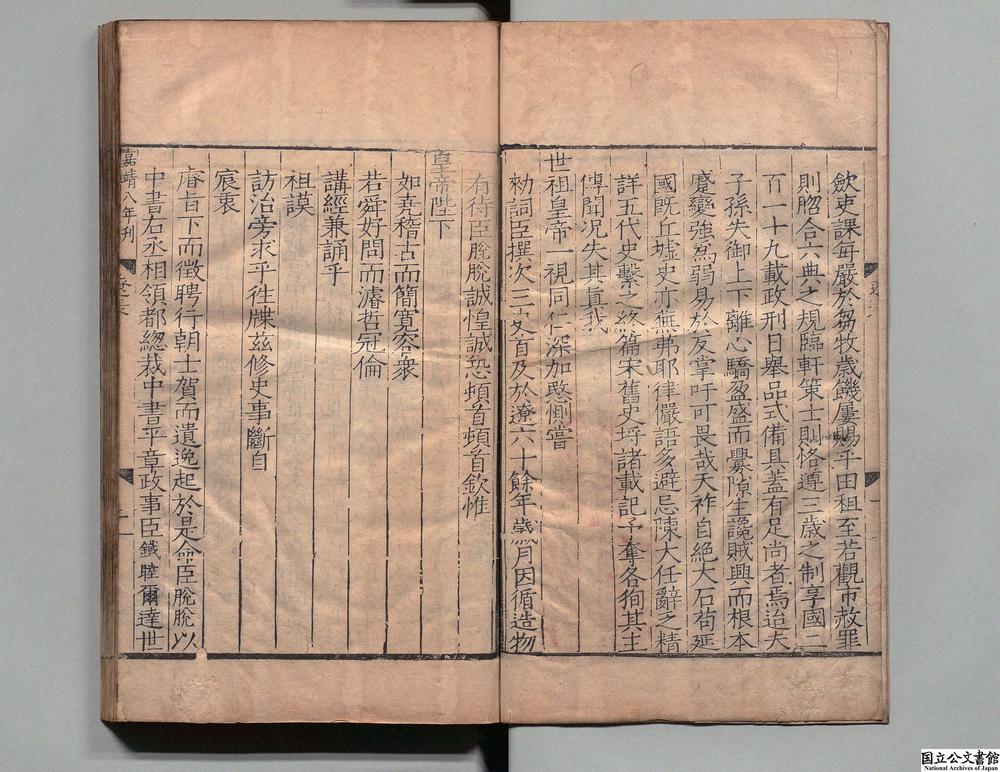 歛吏課每嚴於芻牧歲饑屢賜乎田租至若觀市赦罪
則脗合六典之規臨軒策士則恪遵三歲之制享國二
百一十九載政刑日舉品式備具蓋有足尚者焉迨夫
子孫失御上下離心驕盈盛而釁隙生讒賊興而根本
蹙變強為弱易於反掌吁可畏哉天祚自絶大石苟延
國既丘墟史亦蕪茀耶律儼語多避忌陳大任辭乏精
詳五代史繫之終篇宋舊史埒諸載記予奪各徇其主
傳聞况失其真我
世祖皇帝一視同仁深加愍惻嘗
勑詞臣撰次三史首及於遼六十餘年歲月因循造物
有待臣脫脫誠惶誠恐頓首頓首欽惟
皇帝陛下
如堯稽古而簡寬容衆
若舜好問而濬哲冠倫
講經兼誦乎
祖謨
訪治旁求乎往牒兹修史事斷自
宸衷
睿旨下而徵聘行朝士賀而遺逸起於是命臣脫脫以
中書右丞相領都總裁中書平章政事臣鐵睦爾達世
嘉靖八年刊
国立公文書館
National Archives of Japan